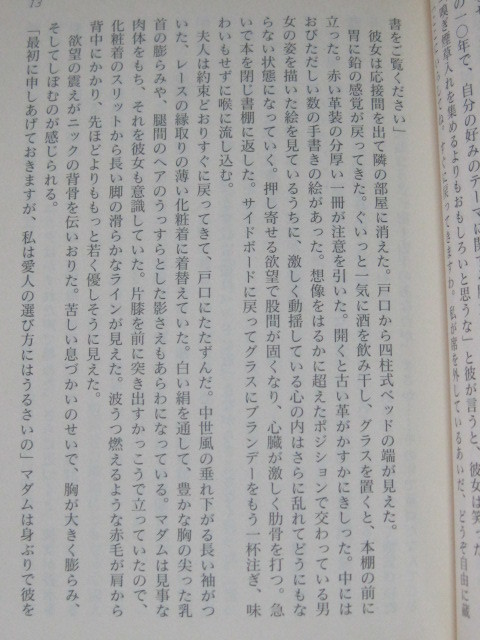 13
の一〇年で、自分の好みのテーマに関
嗅ぎ煙草入れを集めるよりもおもしろいと思うな」と彼が言うと、彼女は笑っ
すぐに戻ってきますわ。私が席を外しているあいだ、どうぞ自由に蔵
書をご覧ください」
彼女は応接間を出て隣の部屋に消えた。戸口から四柱式ベッドの端が見えた。
胃に鉛の感覚が戻ってきた。ぐいっと一気に酒を飲み干し、グラスを置くと、本棚の前に
立った。赤い革装の分厚い一冊が注意を引いた。開くと古い革がかすかにきしった。中には
おびただしい数の手書きの絵があった。想像をはるかに超えたポジションで交わっている男
女の姿を描いた絵を見ているうちに、激しく動揺している心の内はさらに乱れてどうにもな
らない状態になっていく。押し寄せる欲望で股間が固くなり、心臓が激しく肋骨を打つ。急
いで本を閉じ書棚に返した。サイドボードに戻ってグラスにブランデーをもう一杯注ぎ、味
わいもせずに喉に流し込む。
夫人は約束どおりすぐに戻ってきて、戸口にたたずんだ。中世風の垂れ下がる長い袖がつ
いた、レースの縁取りの薄い化粧着に着替えていた。白い絹を通して、豊かな胸の尖った乳
首の膨らみや、腿間のヘアのうっすらとした影さえもあらわになっている。マダムは見事な
肉体をもち、それを彼女も意識していた。片膝を前に突き出すかっこうで立っていたので、
化粧着のスリットから長い脚の滑らかなラインが見えた。波うつ燃えるような赤毛が肩から
背中にかかり、先ほどよりももっと若く優しそうに見えた。
欲望の震えがニックの背骨を伝いおりた。苦しい息づかいのせいで、胸が大きく膨らみ、
そしてしぼむのが感じられる。
「最初に申しあげておきますが、私は愛人の選び方にはうるさいの」マダムは身ぶりで彼を